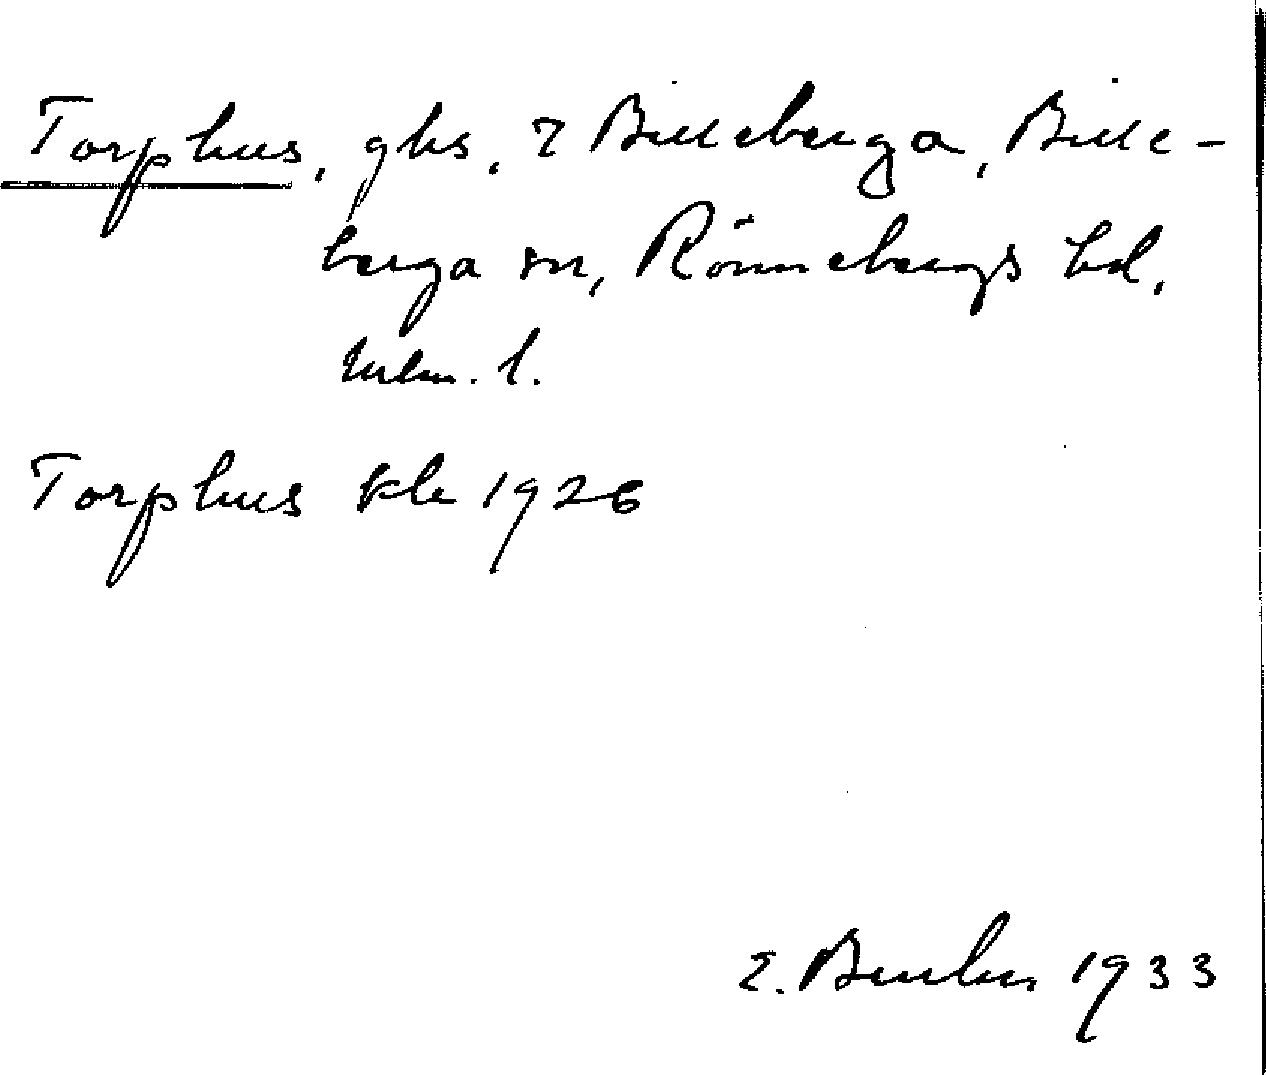 Torphus, ghs, i Billeberga, Bille-
berga sn, Rönnebergs hd,
Mlm. l.
Torphus ek 1926
1933